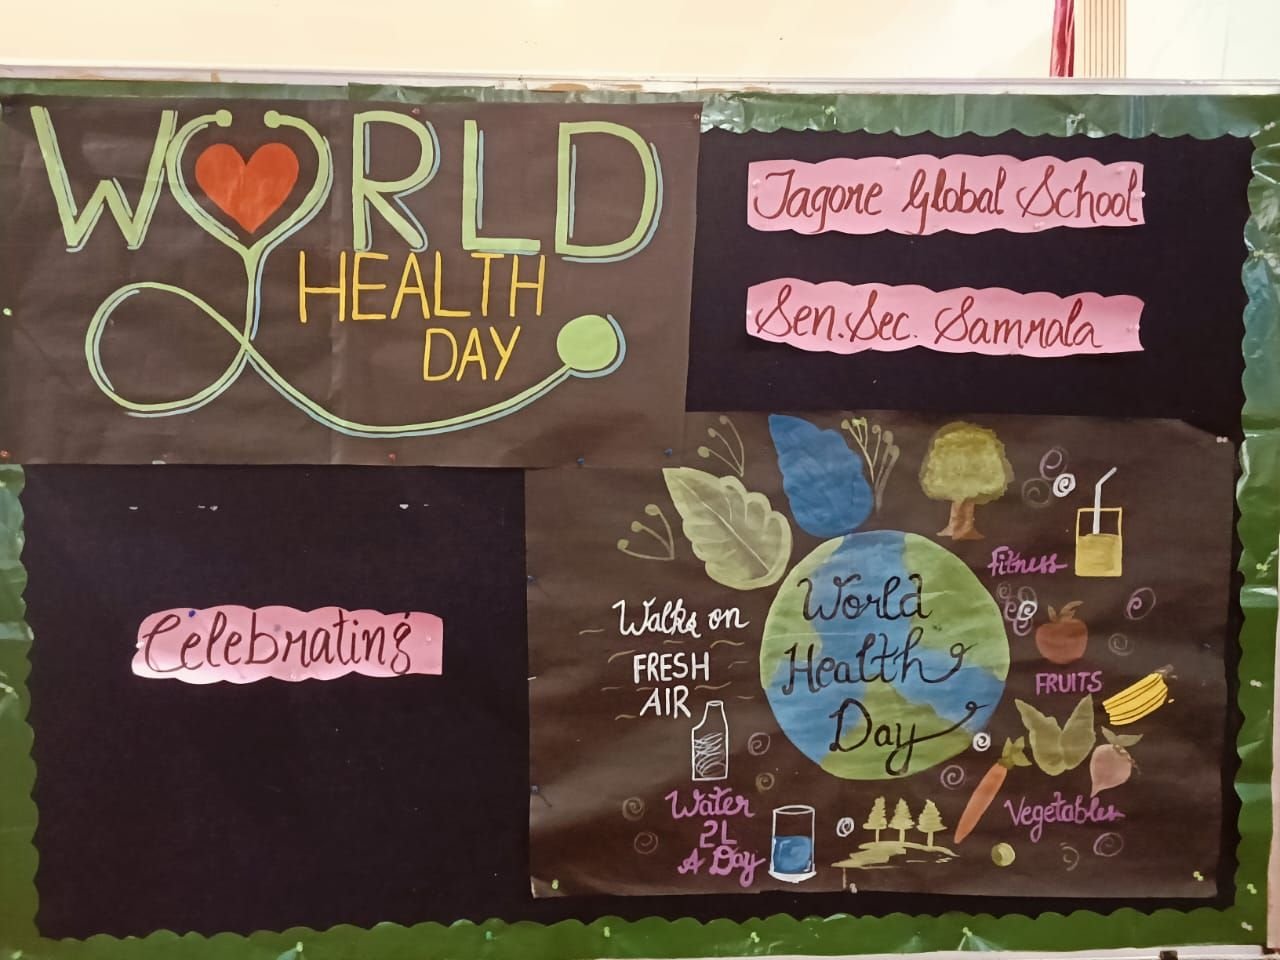 WORLD
HEALTH
DAY
Tagore Global School
Sen. Sec. Samrala
Celebrating
World
Health
Day
Walks on
FRESH
AIR
Water
2L
A Day
Fitness
FRUITS
Vegetables